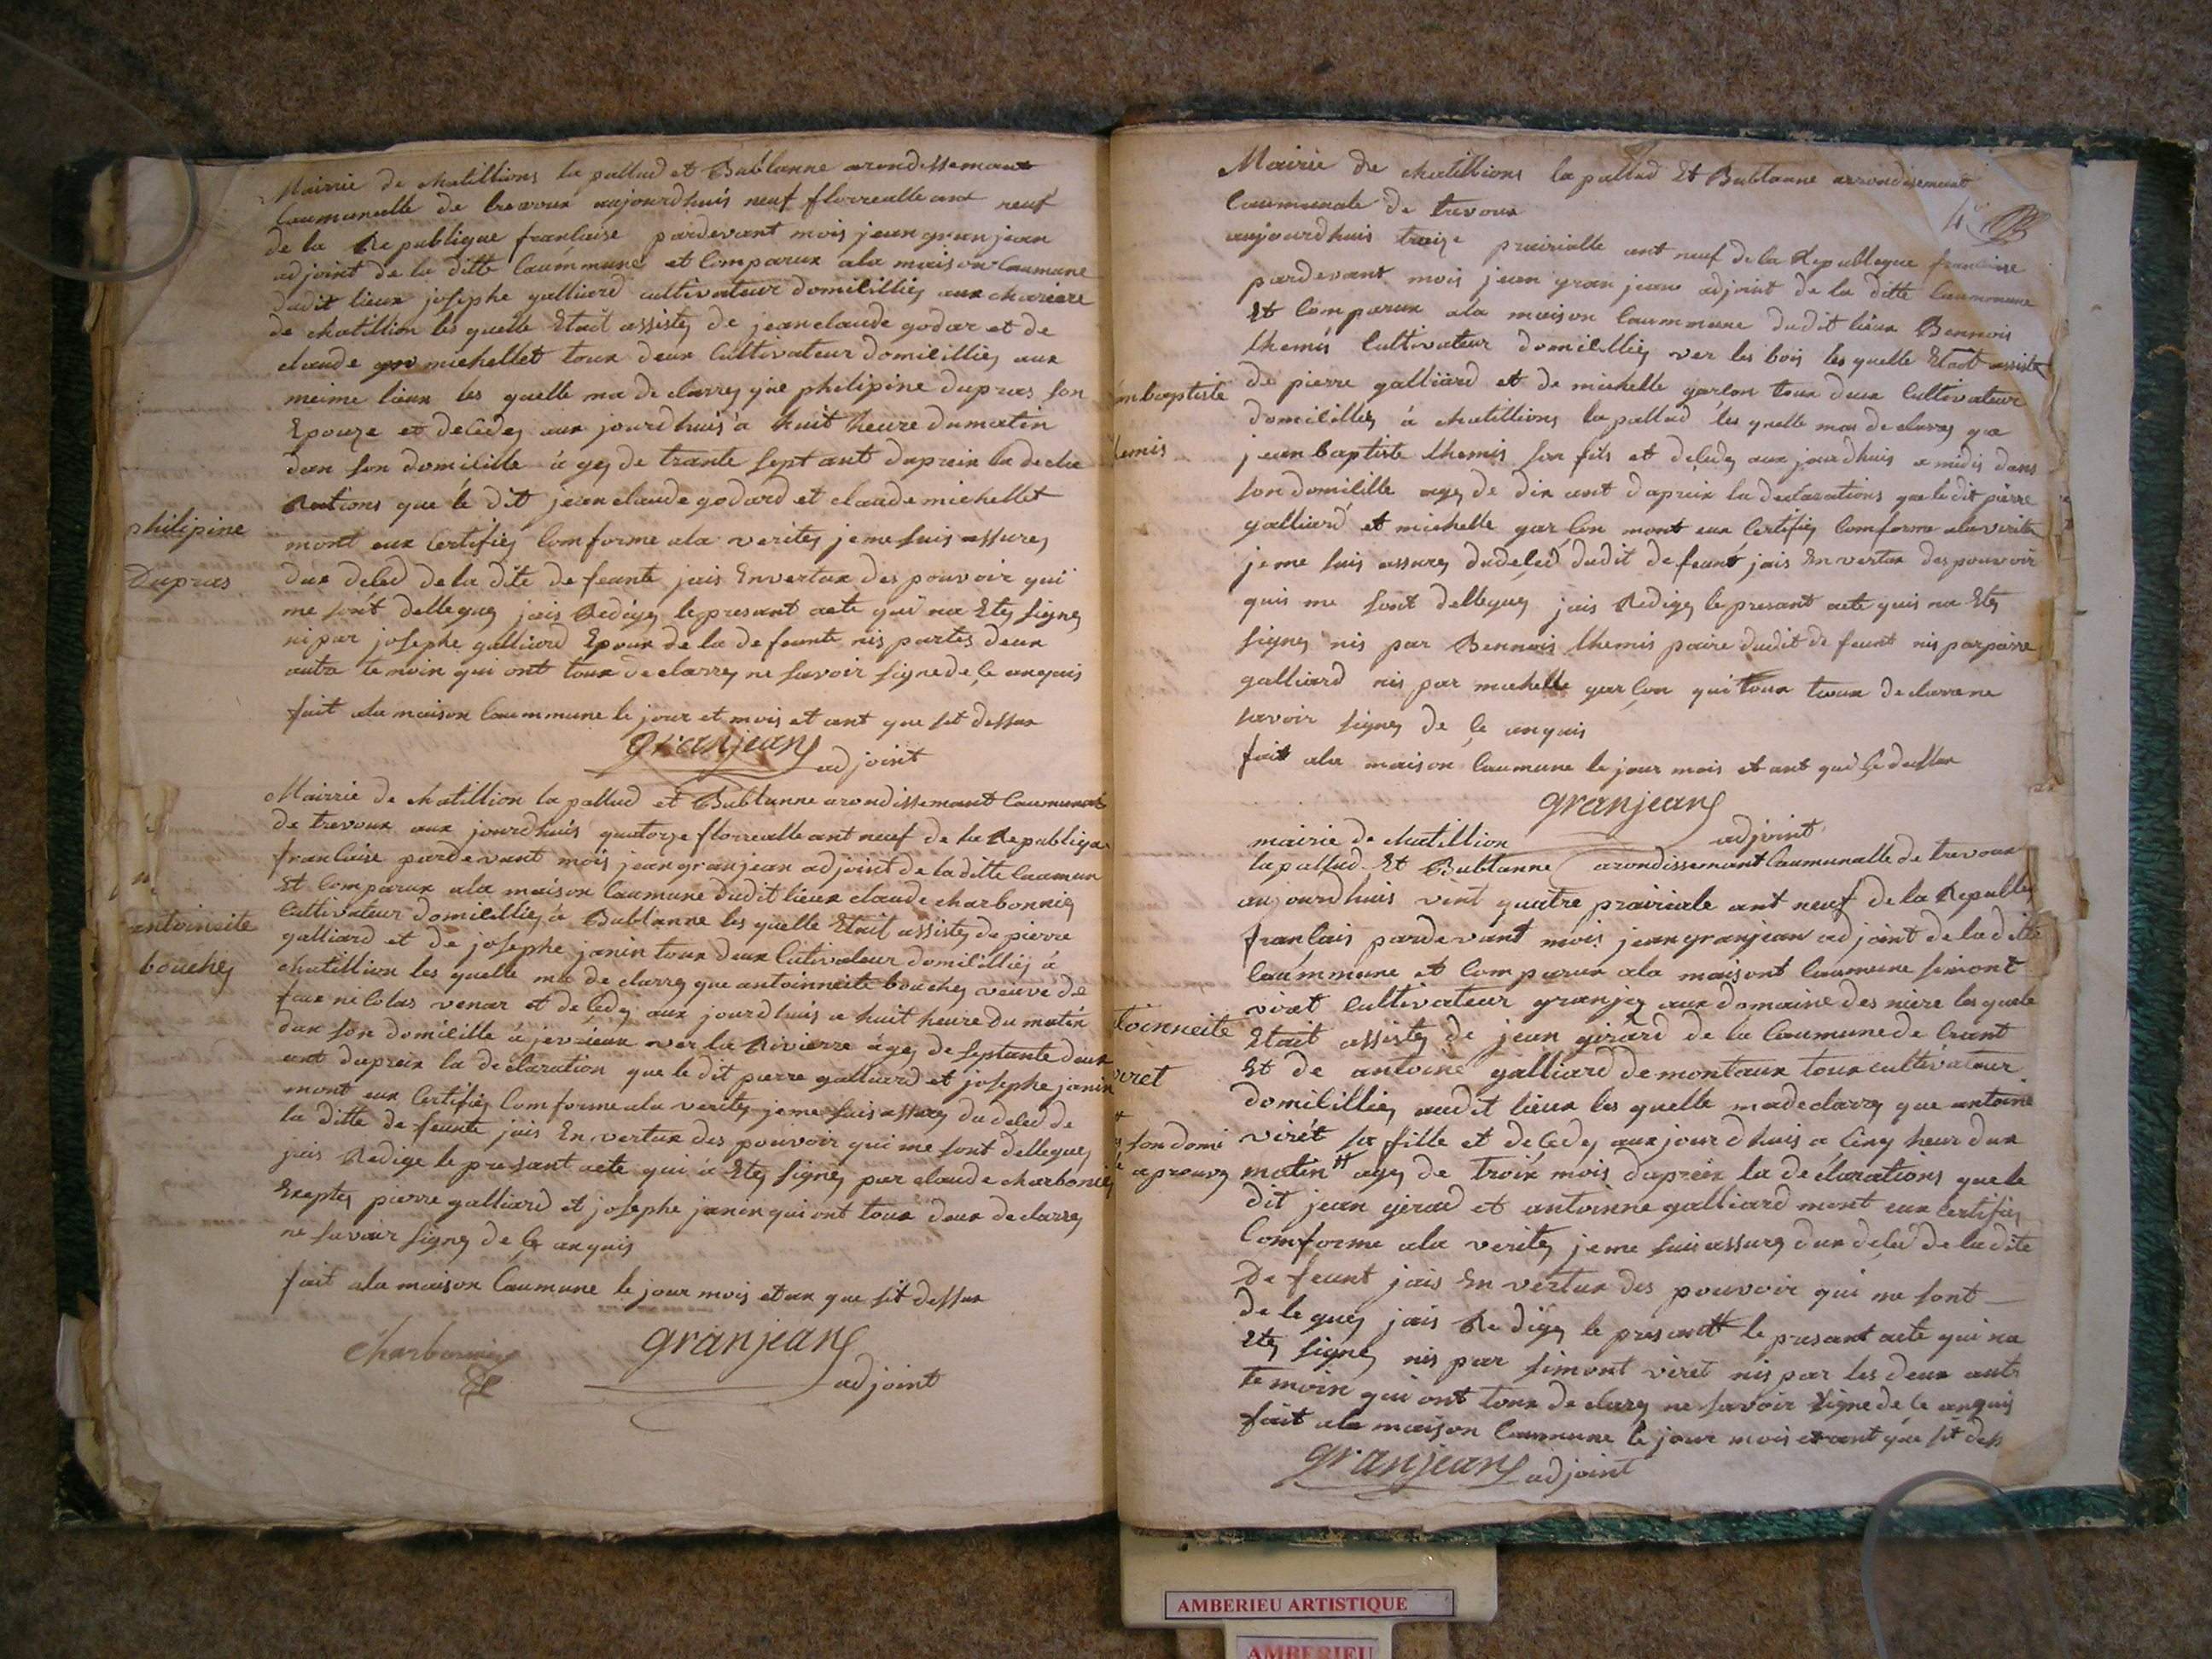 Mairie de chatillions la pallud et Bublanne arondissemant
Caumunalle de trevoux aujourdhuis neuf florrealle ant neuf
de la Republique franlaise pardevant mois jean granjean
adjoint de la ditte Caummune et Comparux ala maison Caumune
dudit lieux josephe galliard cultivateur domicilliez aux chariere
de chatillion les quelle Etait assistez de jean claude godar et de
claude michellet toux deux Cultivateur domicilliez aux
meime lieux les quelle ma declarrez que philipine dupras son
Epouze et decedez aux jourdhuis à huit heure dumatin
dan son domicille à gez de trante sept ant dupreix la decla
Rations que le dit jean claude godard et claude michellet
philipine
Dupras
mont eux Certifiez Comforme ala veritez jeme suis assurez
dux deled de la dite defeunte jais Envertux des pouvoir qui
me sont delleguez jais Redigez le presant acte qui na Etez signez
ni par josephe galliard Epoux de la defeunte nis partes deux
autre temoin qui ont toux declarrez ne savoir signe de ce anquis
fait ala maison Caummune le jour et mois et ant que sit dessux
granjean
adjoint
Mairie de chatillion la pallud et Bublanne arondissemant Caumunal
de trevoux aux jourdhuis quatorze florrealle ant neuf de la Republique
franlaise pardevant mois jean granjean adjoint de la ditte Caumun
Et Comparux ala maison Caumune dudit lieux claude charbonniez
Cultivateur domicilliez à Bublanne les quelle Etait assistez de pierre
antoineite
bouchez
galliard et de josephe janin toux deux Cutivateur domicilliez à
chatillion les quelle ma declarrez que antoinneite bouchez veuve de
faux nicolas venar et decedez aux jourdhuis a huit heure du matin
dux son domicille à jevrieux ver la Rivierre agez de septante deux
ant dupreix la declaration que le dit pierre galliard et josephe janin
mont eux Certifiez Comforme ala veritez jeme suis assurez du deled de
la ditte defeunte jais En vertux des pouvoir qui me sont delleguez
jais Redige le presant acte qui à Etez signez par claude charboniez
Exeptez pierre galliard et josephe janin qui ont toux deux declarrez
ne savoir signez de ce anquis
fait ala maison Caumune le jour mois et an que sit dessux
Charbonniez
granjean
adjoint
Mairie de chatillions la pallud Et Bublanne arrondissemant
Caumunale de trevoux
4e
aujourdhuis treize prairialle ant neuf de la Republeque franlaise
pardevant mois jean granjean adjoint de la ditte Caummune
Et Comparux ala maison Caummune dudit lieux Bennois
themis Cultivateur domicilliez ver les bois les quelle Etoit assiste
mbaptiste
themis
de pierre galliard et de michelle garlon toux deux Cultivateur
domicilliez à chatillions la pallud les quelle mon declarez que
jean baptiste themis son fils et decedez aux jourdhuis a midis dans
son domicille agez de dix ant dapreix la declarations que le dit pierre
galliard et michelle garlon mont eux Certifiez Comforme ala verite
jeme suis assurez dudeled dudit defeunt jais En vertux des pouvoir
quis me sont delleguez jais Redigez le presant acte quis na Etez
signez nis par Bennois themis paire dudit defeunt nis parpaire
galliard nis par michelle garlon qui toux toux declarrene
savoir signez de ce anquis
fait ala maison Caumune le jour mois et ant qui Ce dessux
granjean
adjoint
mairie de chatillion
la pallud Et Bublanne arondissemant Caumunalle de trevoux
aujourdhuis vint quatre prairiale ant neuf de la Republez
franlais pardevant mois jean granjean adjoint de la ditte
Caummune et Comparux ala maisont Caumune simont
viret Cultivateur granjez aux domaine des niere les quele
toinneite
viret
Etait assistez de jean girard de la Caumune de Crant
Et de antoine galliard de montaux toux cultivateur
domicilliez audit lieux les quelle madeclarrez que antoine
virét sa fille et decedez aux jourdhuis a Cinq heur dux
son domi
aprouvez
matin # agez de troix mois dapreix la declarations quele
dit jean girad et antoinne galliard mont eux Certifiez
Comforme ala veritez jeme suis assurez dux deled de ladite
defeunt jais En vertux des pouvoir qui me sont
deleguez jais Redigez le presantt le presant acte qui na
Etez signez nis par simont viret nis par les deux autr
temoin qui ont toux declarez ne savoir signe de ce anquis
fait ala maison Caumune le jour mois et ant que sit dess
granjean adjoint
AMBERIEU ARTISTIQUE
AMBERIEU